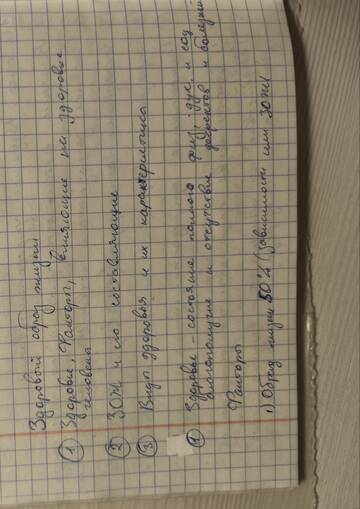 Здоровый образ жизни
① Здоровье, Факторы, влияющие на здоровье
человека
② ЗОЖ и его составляющие
③ Виды здоровья и их характеристика
① Здоровье – состояние полного физ, дух. и соц
благополучия и отсутствие дефектов и болезней
Факторы
1) Образ жизни 50% (зависимости или ЗОЖ)